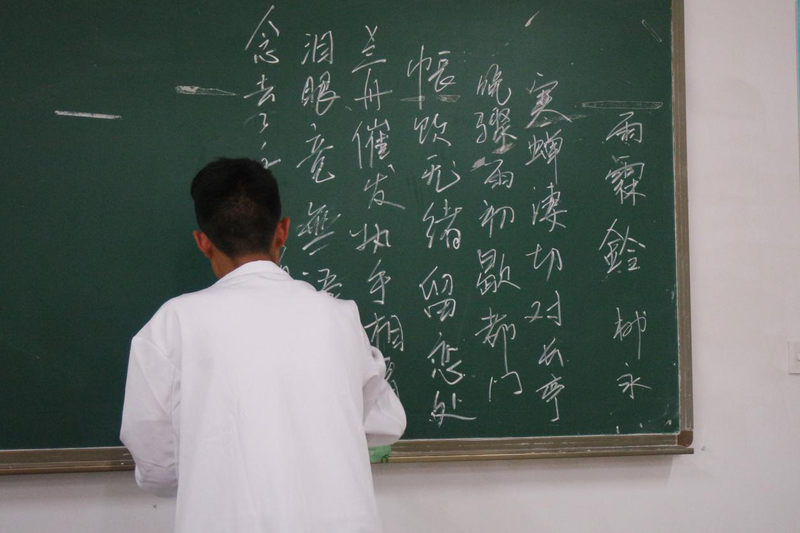 雨霖鈴 柳永
寒蝉淒切对长亭
晚骤雨初歇都门
帳饮无绪留恋处
兰舟催发执手相
泪眼竟無语
念去